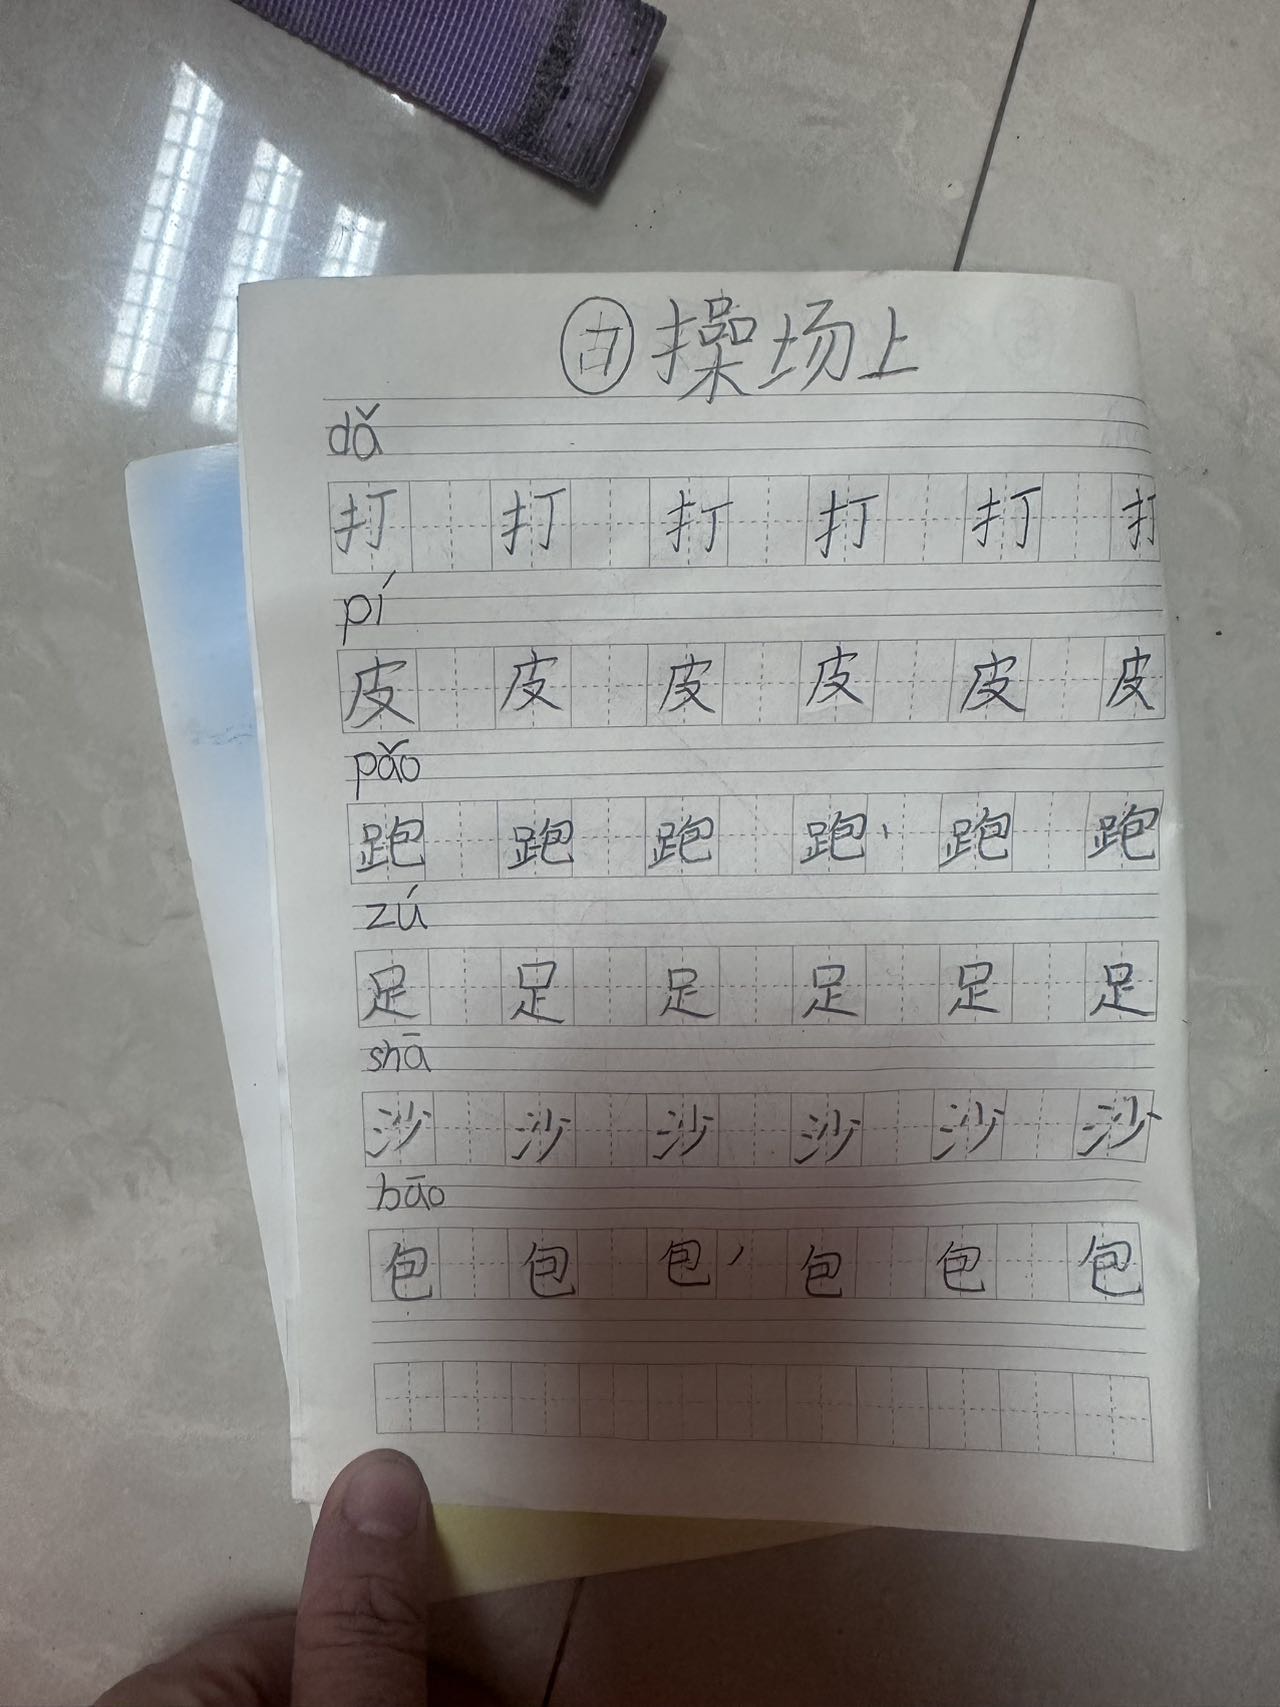 操场上
dǎ
打 打 打 打 打 打
pí
皮 皮 皮 皮 皮 皮
pǎo
跑 跑 跑 跑 跑 跑
zú
足 足 足 足 足 足
shā
沙 沙 沙 沙 沙 沙
bāo
包 包 包 包 包 包